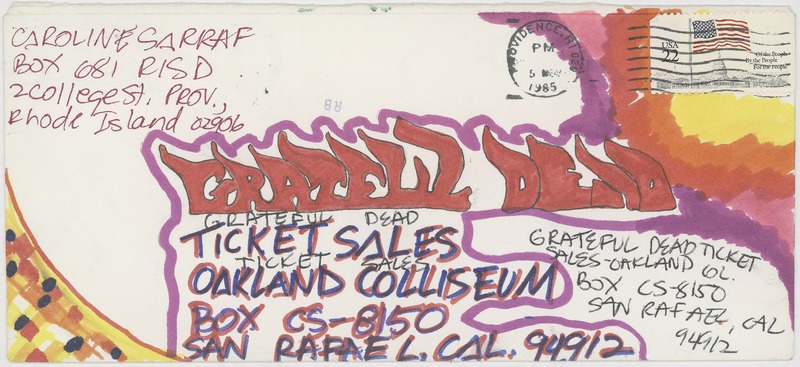 CAROLINE SARRAF
BOX 681 RISD
2 College St. PROV.,
Rhode Island 02906
PROVIDENCE, RI
PM
5 NOV
1985
USA
22
Of the People
By the People
For the People
RB
GRATEFUL DEAD
GRATEFUL DEAD
TICKET SALES
TICKET SALES
OAKLAND COLLISEUM
BOX CS-8150
SAN RAFAEL, CAL. 94912
GRATEFUL DEAD TICKET
SALES-OAKLAND COL.
BOX CS-8150
SAN RAFAEL, CAL
94912